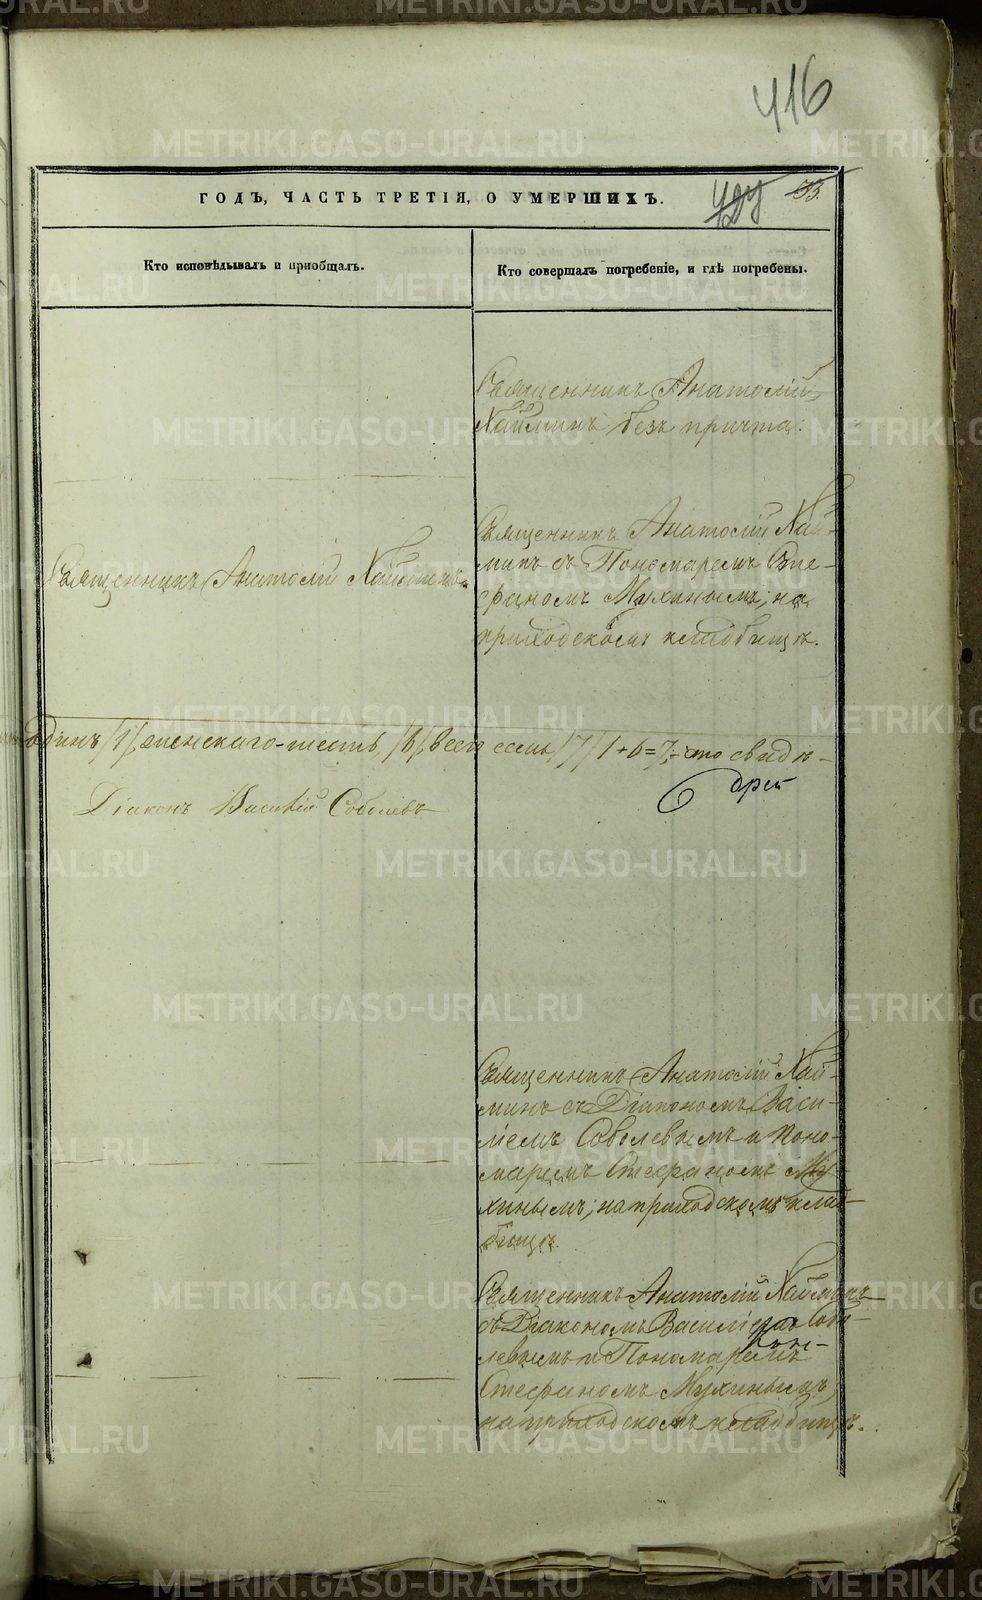 416
ГОДЪ, ЧАСТЬ ТРЕТІЯ, О УМЕРШИХЪ.
53.
Кто исповѣдывалъ и приобщалъ.
Кто совершалъ погребеніе, и гдѣ погребены.
Священникъ Анатолій
Хайминъ безъ причта.
Священникъ Анатолій Хай-
минъ съ Пономаремъ Сте-
фаномъ Мухинымъ, на
приходскомъ кладбищѣ.
Священникъ Анатолій Хайминъ
одинъ /1/, женскаго-шесть, /6/, всего семь /7/ 1+6=7, что свидѣ-
Діаконъ Василій Соболевъ
Священникъ Анатолій Хай-
минъ съ Діакономъ Васи-
ліемъ Соболевымъ и Поно-
маремъ Стефаномъ Му-
хинымъ, на приходскомъ клад-
бищѣ.
Священникъ Анатолій Хайминъ
съ Діакономъ Василіемъ Собо-
левымъ и Пономаремъ
Стефаномъ Мухинымъ,
на приходскомъ кладбищѣ.
METRIKI.GASO-URAL.RU